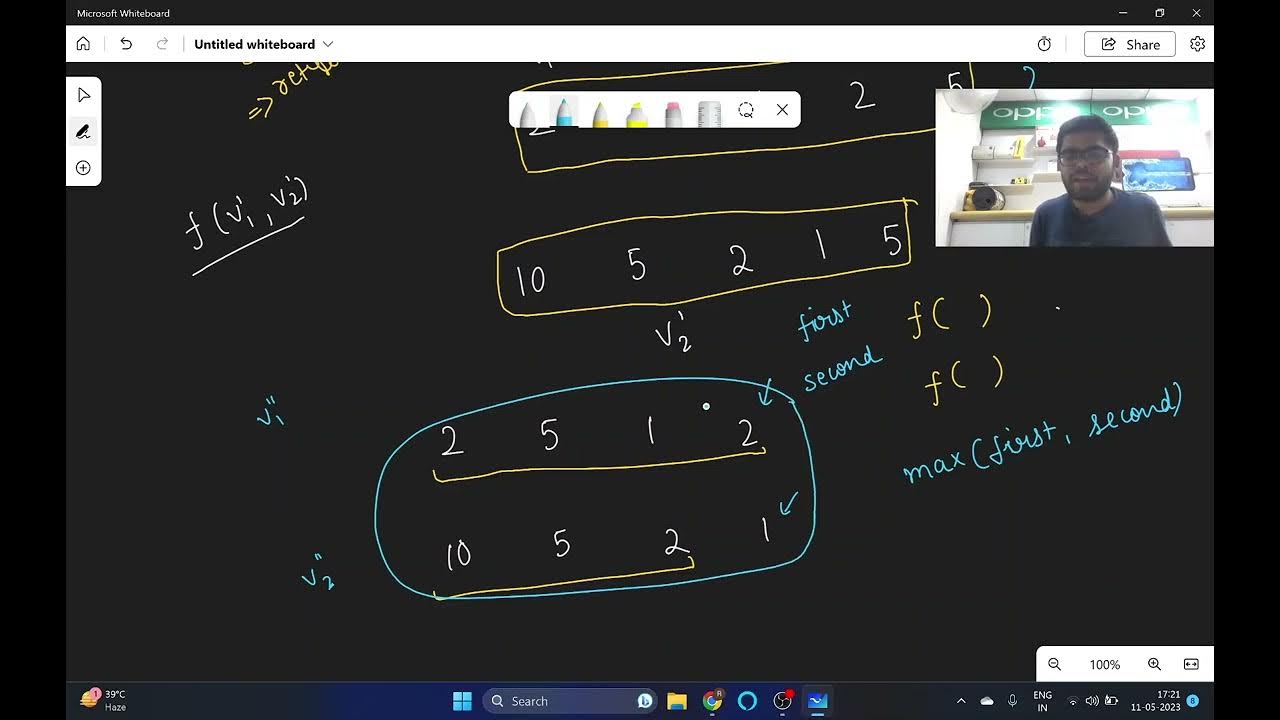 Microsoft Whiteboard
Untitled whiteboard
Share
=> 
2 5 2
oppo oppo
f(v₁', v₂')
10 5 2 1 5
v₂'
first f( )
second f( )
v₁"
2 5 1 2
max(first, second)
10 5 2 1
v₂"
100%
1
39°C
Haze
Search
R
ENG
IN
17:21
11-05-2023
8